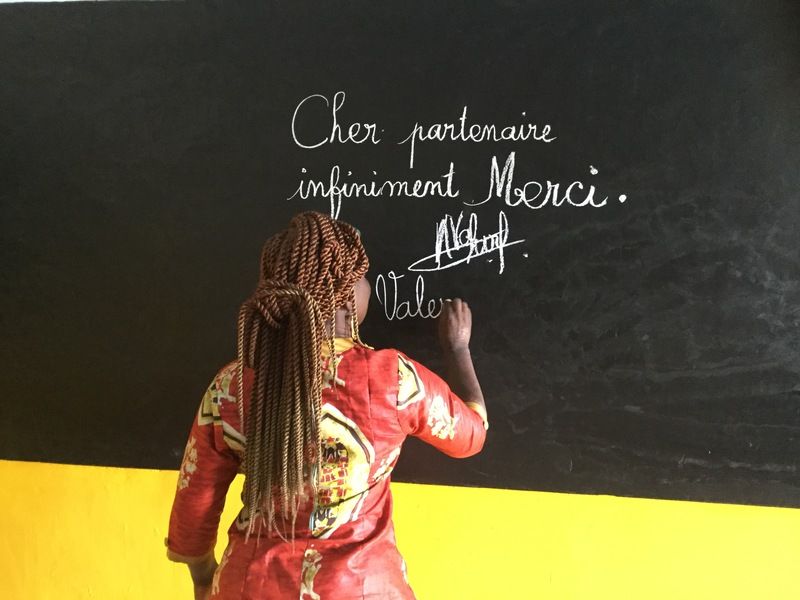 Cher partenaire
infiniment Merci.
Vale